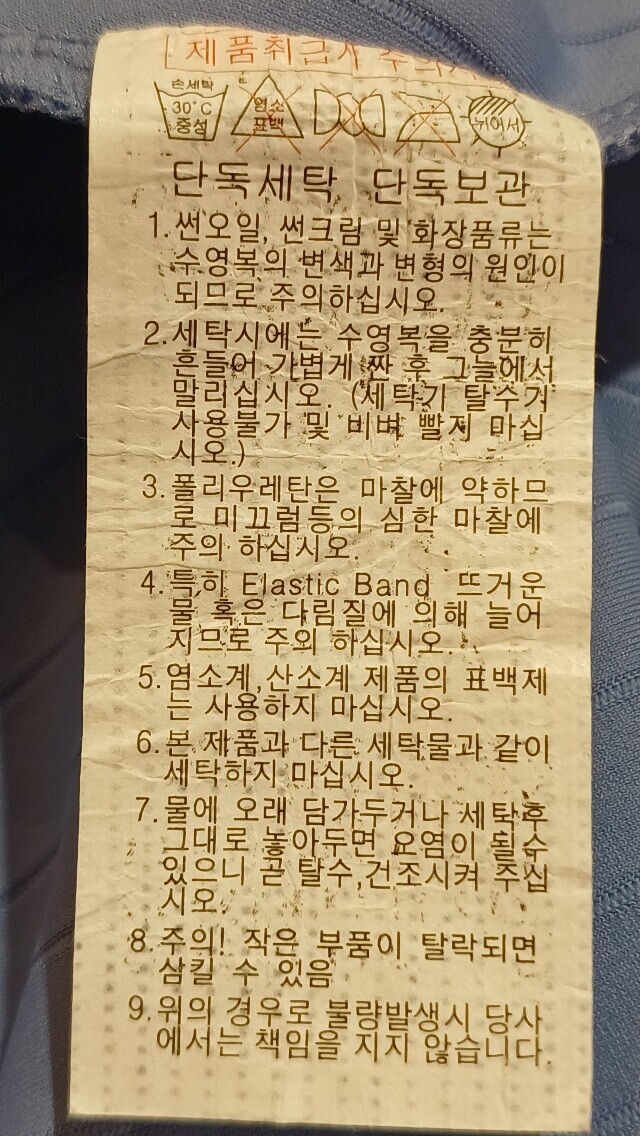 제품취급시 주의사항
손세탁
30°C
중성
염소
표백
뉘어서
단독세탁, 단독보관
1. 썬오일, 썬크림 및 화장품류는
수영복의 변색과 변형의 원인이
되므로 주의하십시오.
2. 세탁시에는 수영복을 충분히
흔들어 가볍게 짠 후 그늘에서
말리십시오. (세탁기 탈수기
사용불가 및 비벼 빨지 마십
시오.)
3. 폴리우레탄은 마찰에 약하므
로 미끄럼등의 심한 마찰에
주의 하십시오.
4. 특히 Elastic Band 뜨거운
물 혹은 다림질에 의해 늘어
지므로 주의 하십시오.
5. 염소계,산소계 제품의 표백제
는 사용하지 마십시오.
6. 본 제품과 다른 세탁물과 같이
세탁하지 마십시오.
7. 물에 오래 담가두거나 세탁후
그대로 놓아두면 오염이 될수
있으니 곧 탈수,건조시켜 주십
시오.
8. 주의! 작은 부품이 탈락되면
삼킬 수 있음
9. 위의 경우로 불량발생시 당사
에서는 책임을 지지 않습니다.